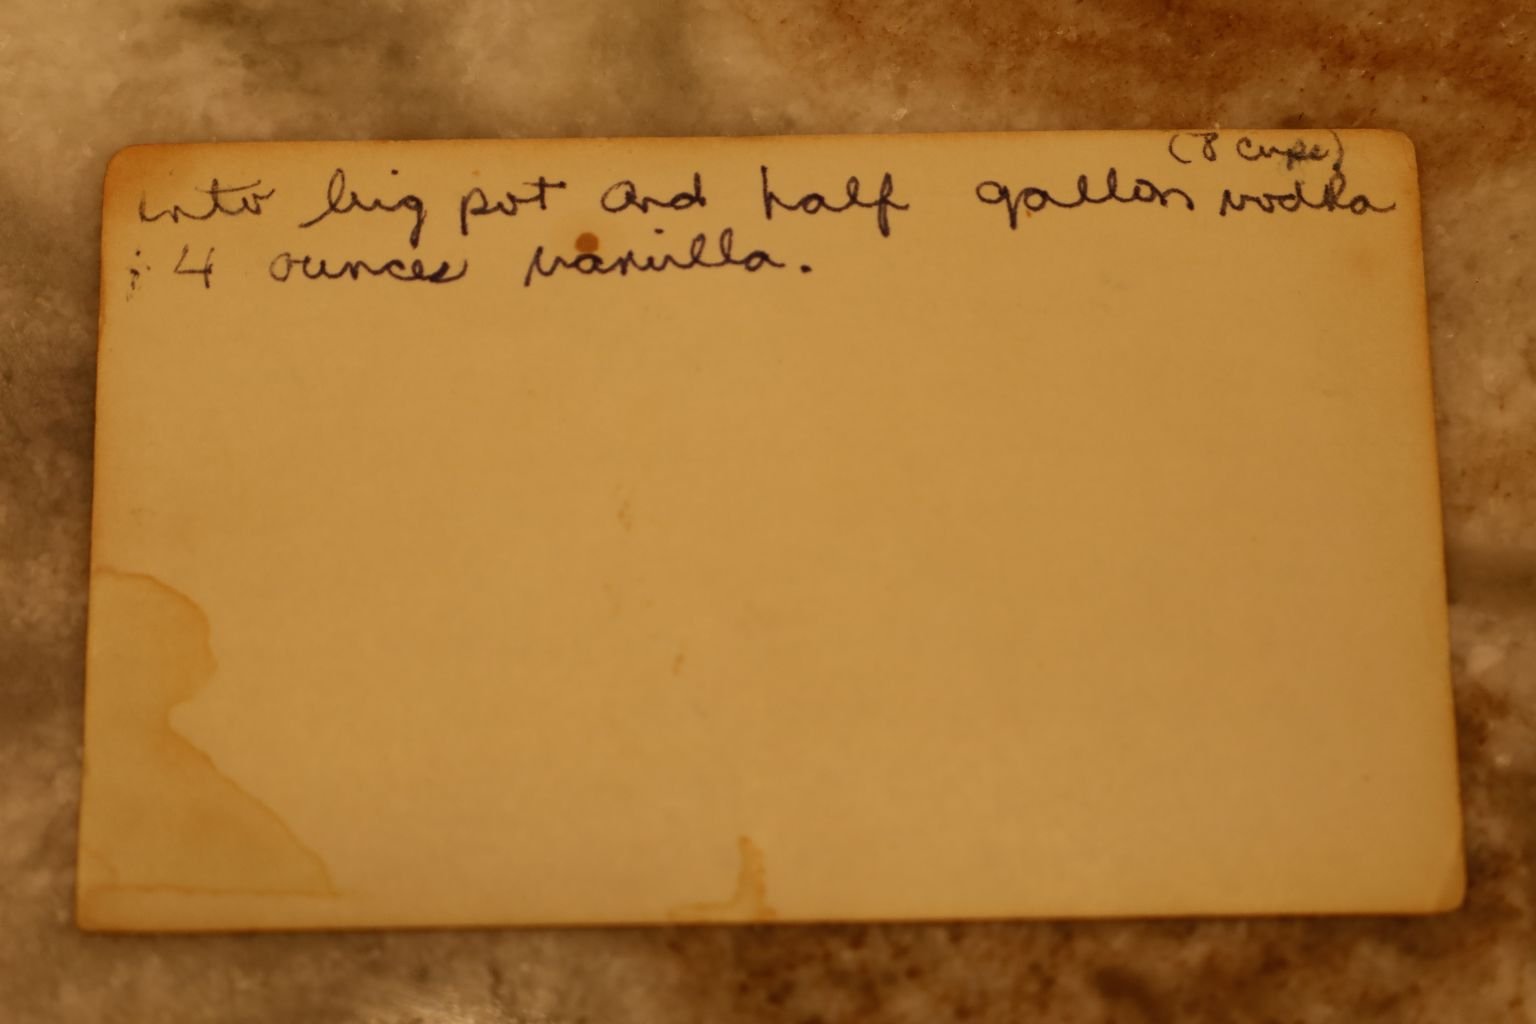 (8 cups)
into big pot and half gallon vodka
; 4 ounces vanilla.